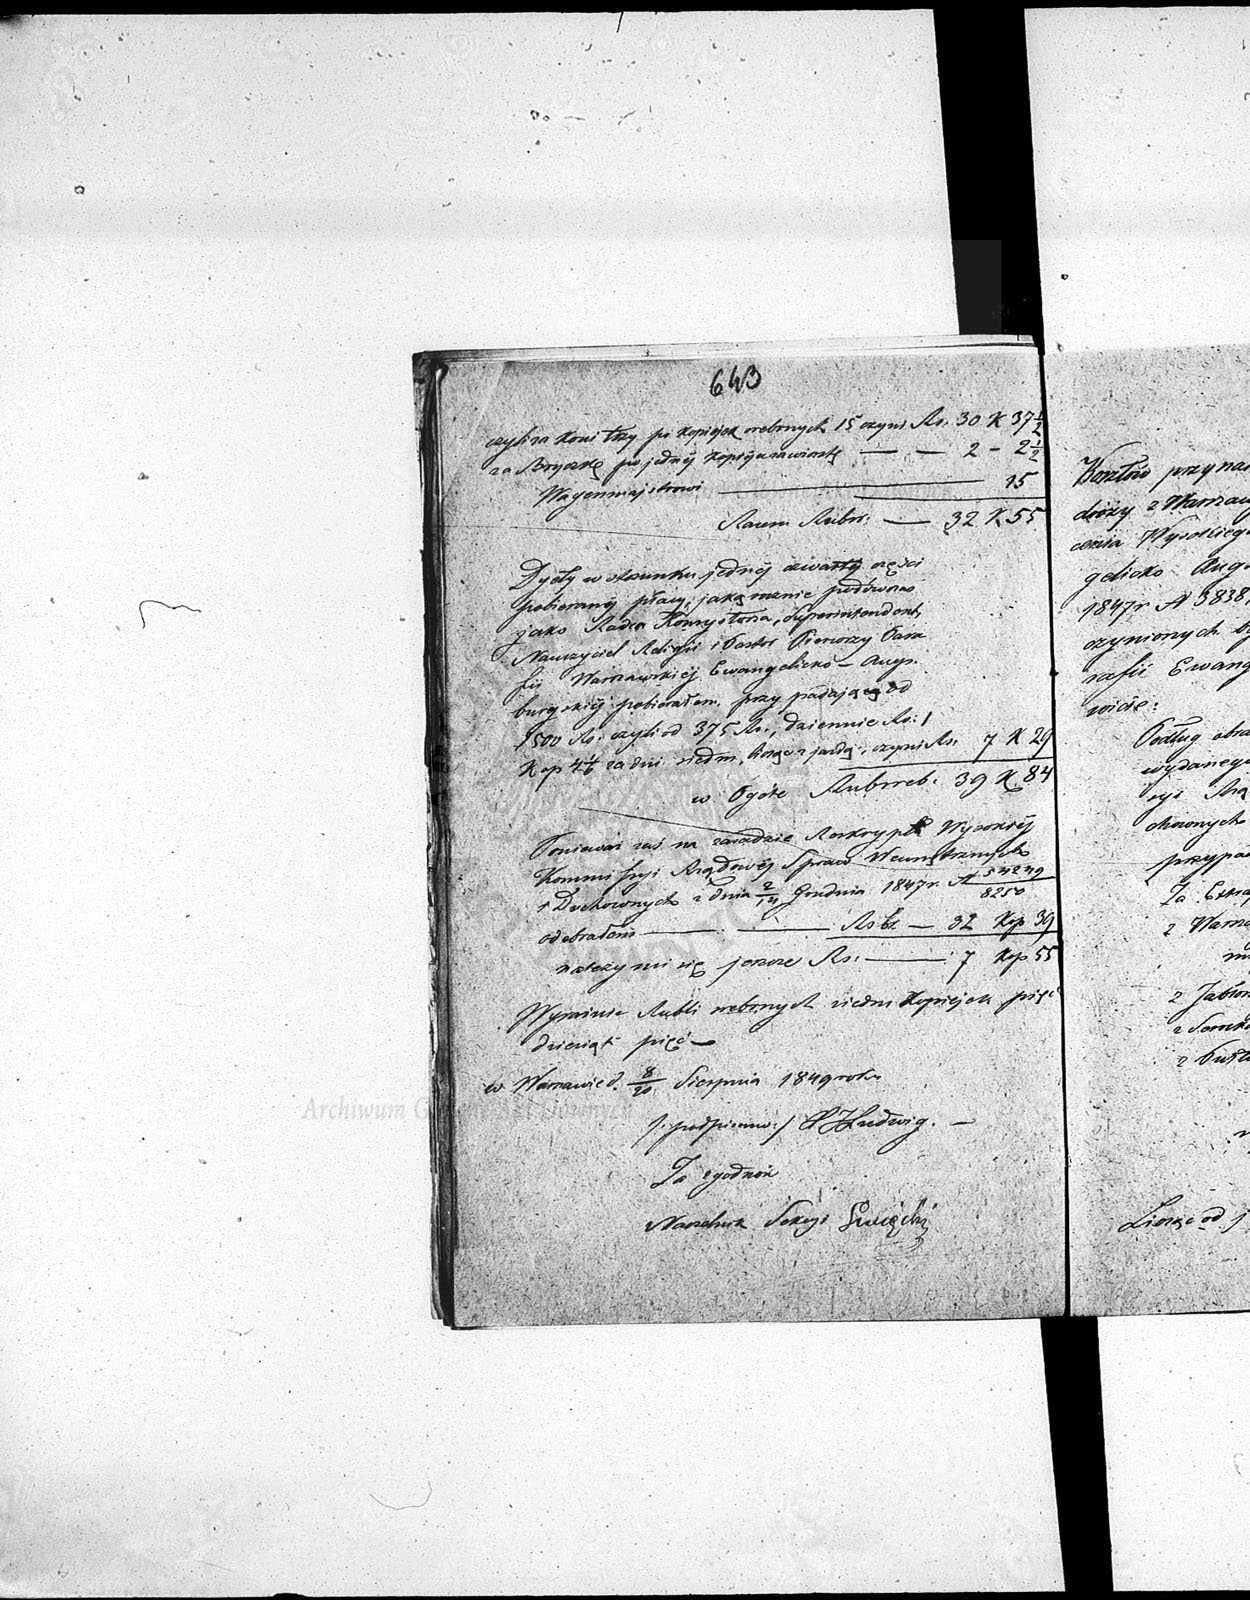 643
czyli za koni trzy po kopiejek srebrnych 15 czyni Rs. 30 K 37½
za Bryczkę po jednej kopiejce za wiorstę — — 2 - 2½
Wagenmajstrowi 15
Razem Rubsr. — 32 K 55
Dyety w stosunku jednej czwartej części
pobieranej płacy, jaką rocznie podówczas
jako Radca Konsystorza, Superintendent,
Nauczyciel Religii i Pastor Pierwszy Para
fii Warszawskiej Ewangelicko - Augs.
burgskiej pobierałem, przypadającej od
1500 Rs: czyli od 375 Rs., dziennie Rs: 1
Kop 4 1/6 za dni siedm, licząc z jazdą, czyni Rs. 7 K 29
w Ogóle Rubsreb. 39 K. 84
Ponieważ zaś na zasadzie Reskryptu Wysokiej
Kommissyi Rządowej Spraw Wewnętrznych
i Duchownych z dnia 2/14 Grudnia 1847 r. N 54249/8250
odebrałem — Rsbr. — 32 Kop 39
należy mi się jeszcze Rs: — 7 Kop 55
Wyraźnie Rubli srebrnych siedm Kopiejek pięć
dziesiąt pięć —
w Warszawie d. 8/20 Sierpnia 1849 roku
/: podpisano :/ Ludwig. —
Za zgodność
Naczelnik Sekcyi
Kosztów przy
droży z Warszaw
cenia Wysokiego
gelicko Augs
1847 r N 3838,
czynionych
rafii Ewang
wicie:
Podług
wydanego
cyi Rzą
chownych
przypa
Za Extra
z Warsz
z Jabłon
z Serocka
z Pułtu
Licząc od j
Archiwum Główne Akt Dawnych